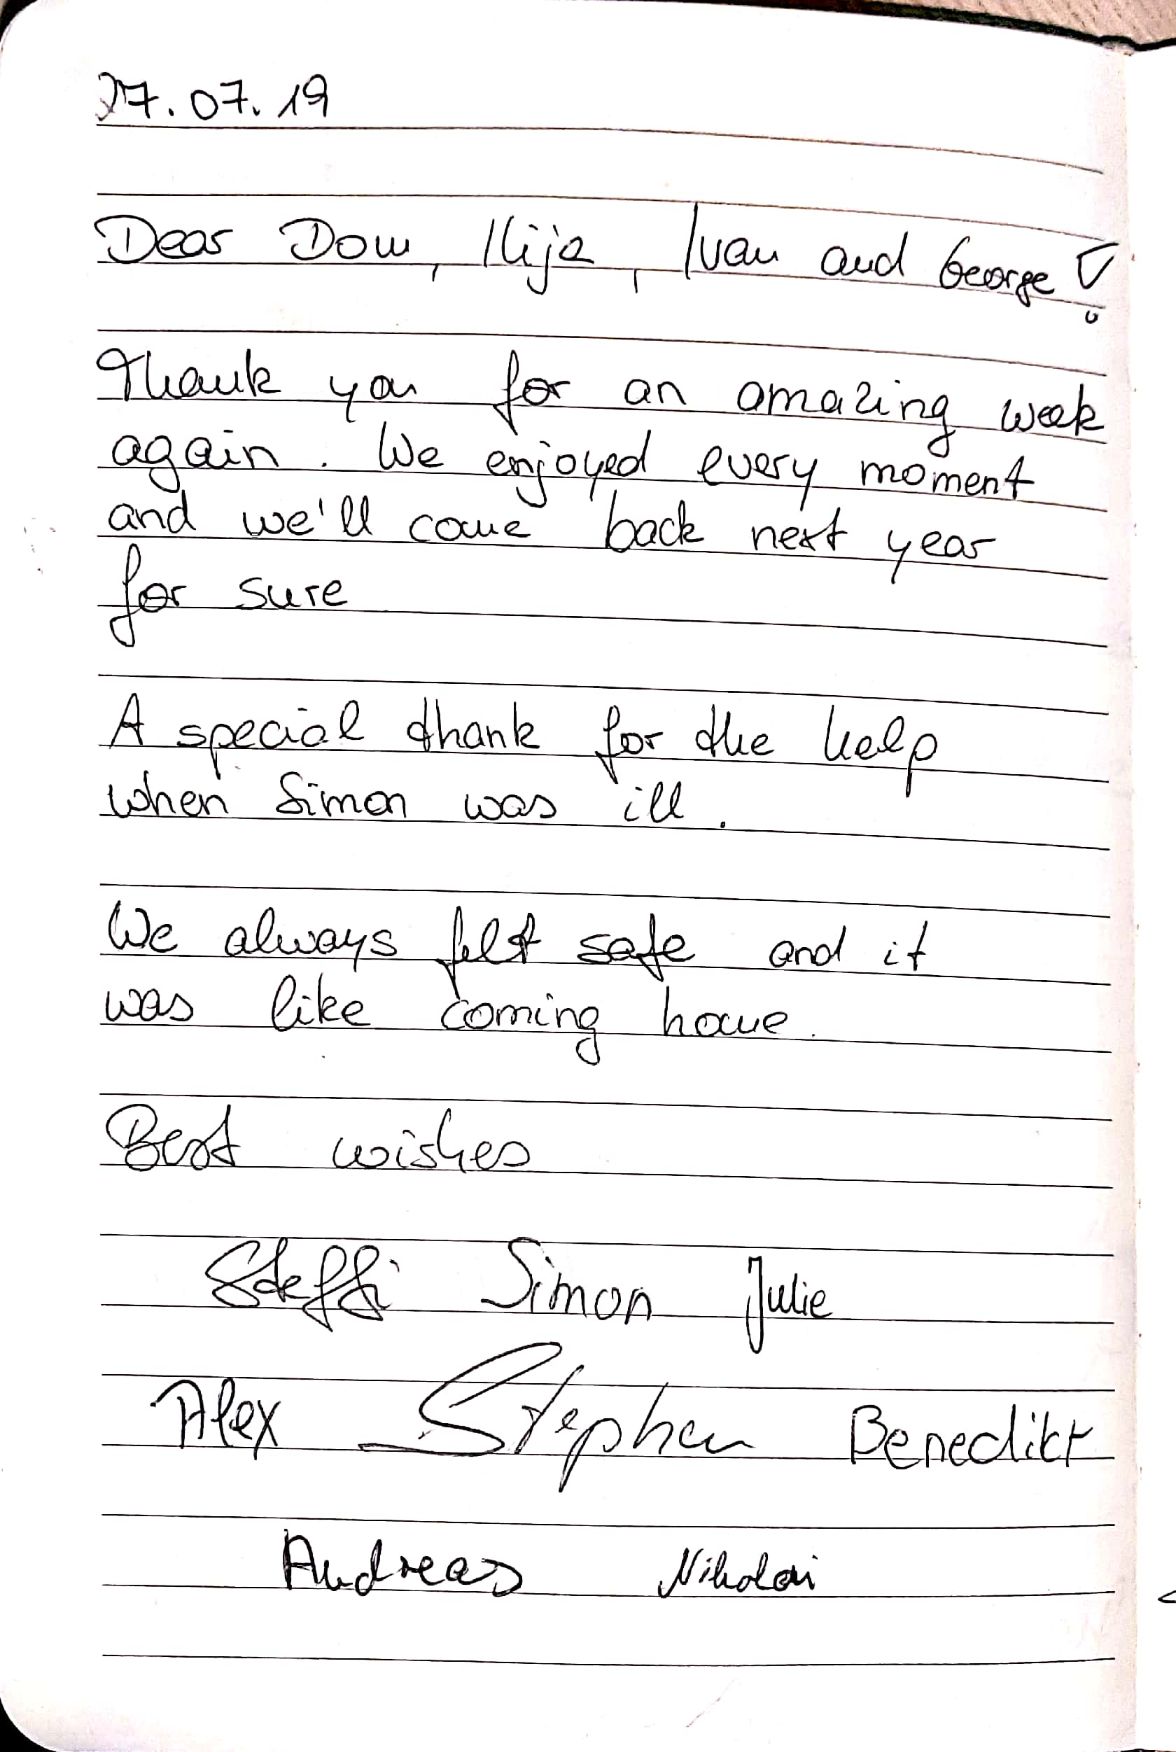 27.07.19
Dear Dom, Ilija, Ivan and George!
Thank you for an amazing week
again. We enjoyed every moment
and we'll come back next year
for sure
A special thank for the help
when Simon was ill.
We always felt safe and it
was like coming home.
Best wishes
Steffi Simon Julie
Alex Stephen Benedikt
Andreas Nikolai